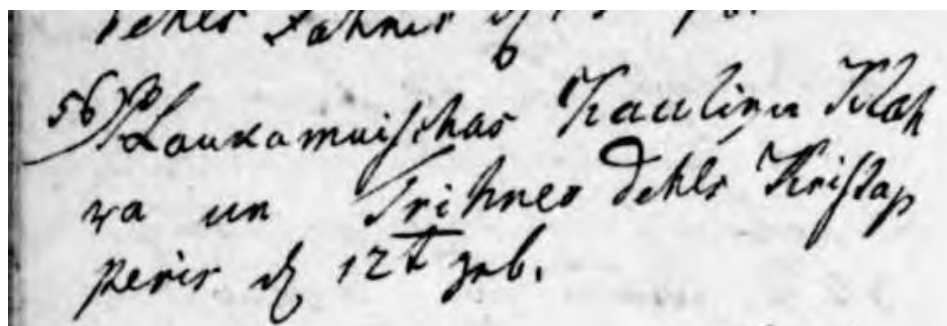 dehls Jahnis
56) Laukamuischas Kauliņu Klah
va un Trihnes dehls Kristap
peris d 12t geb.